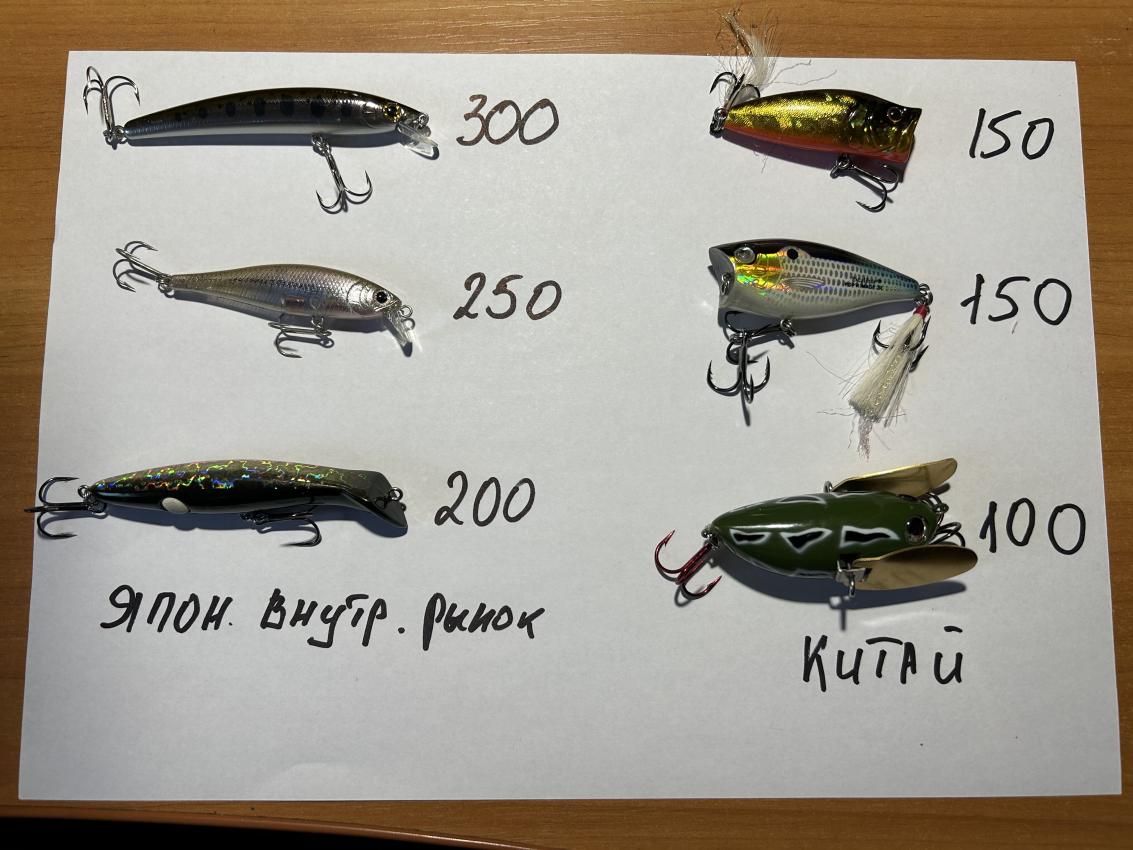 300
150
250
150
200
100
Япон. Внутр. рынок
КИТАЙ